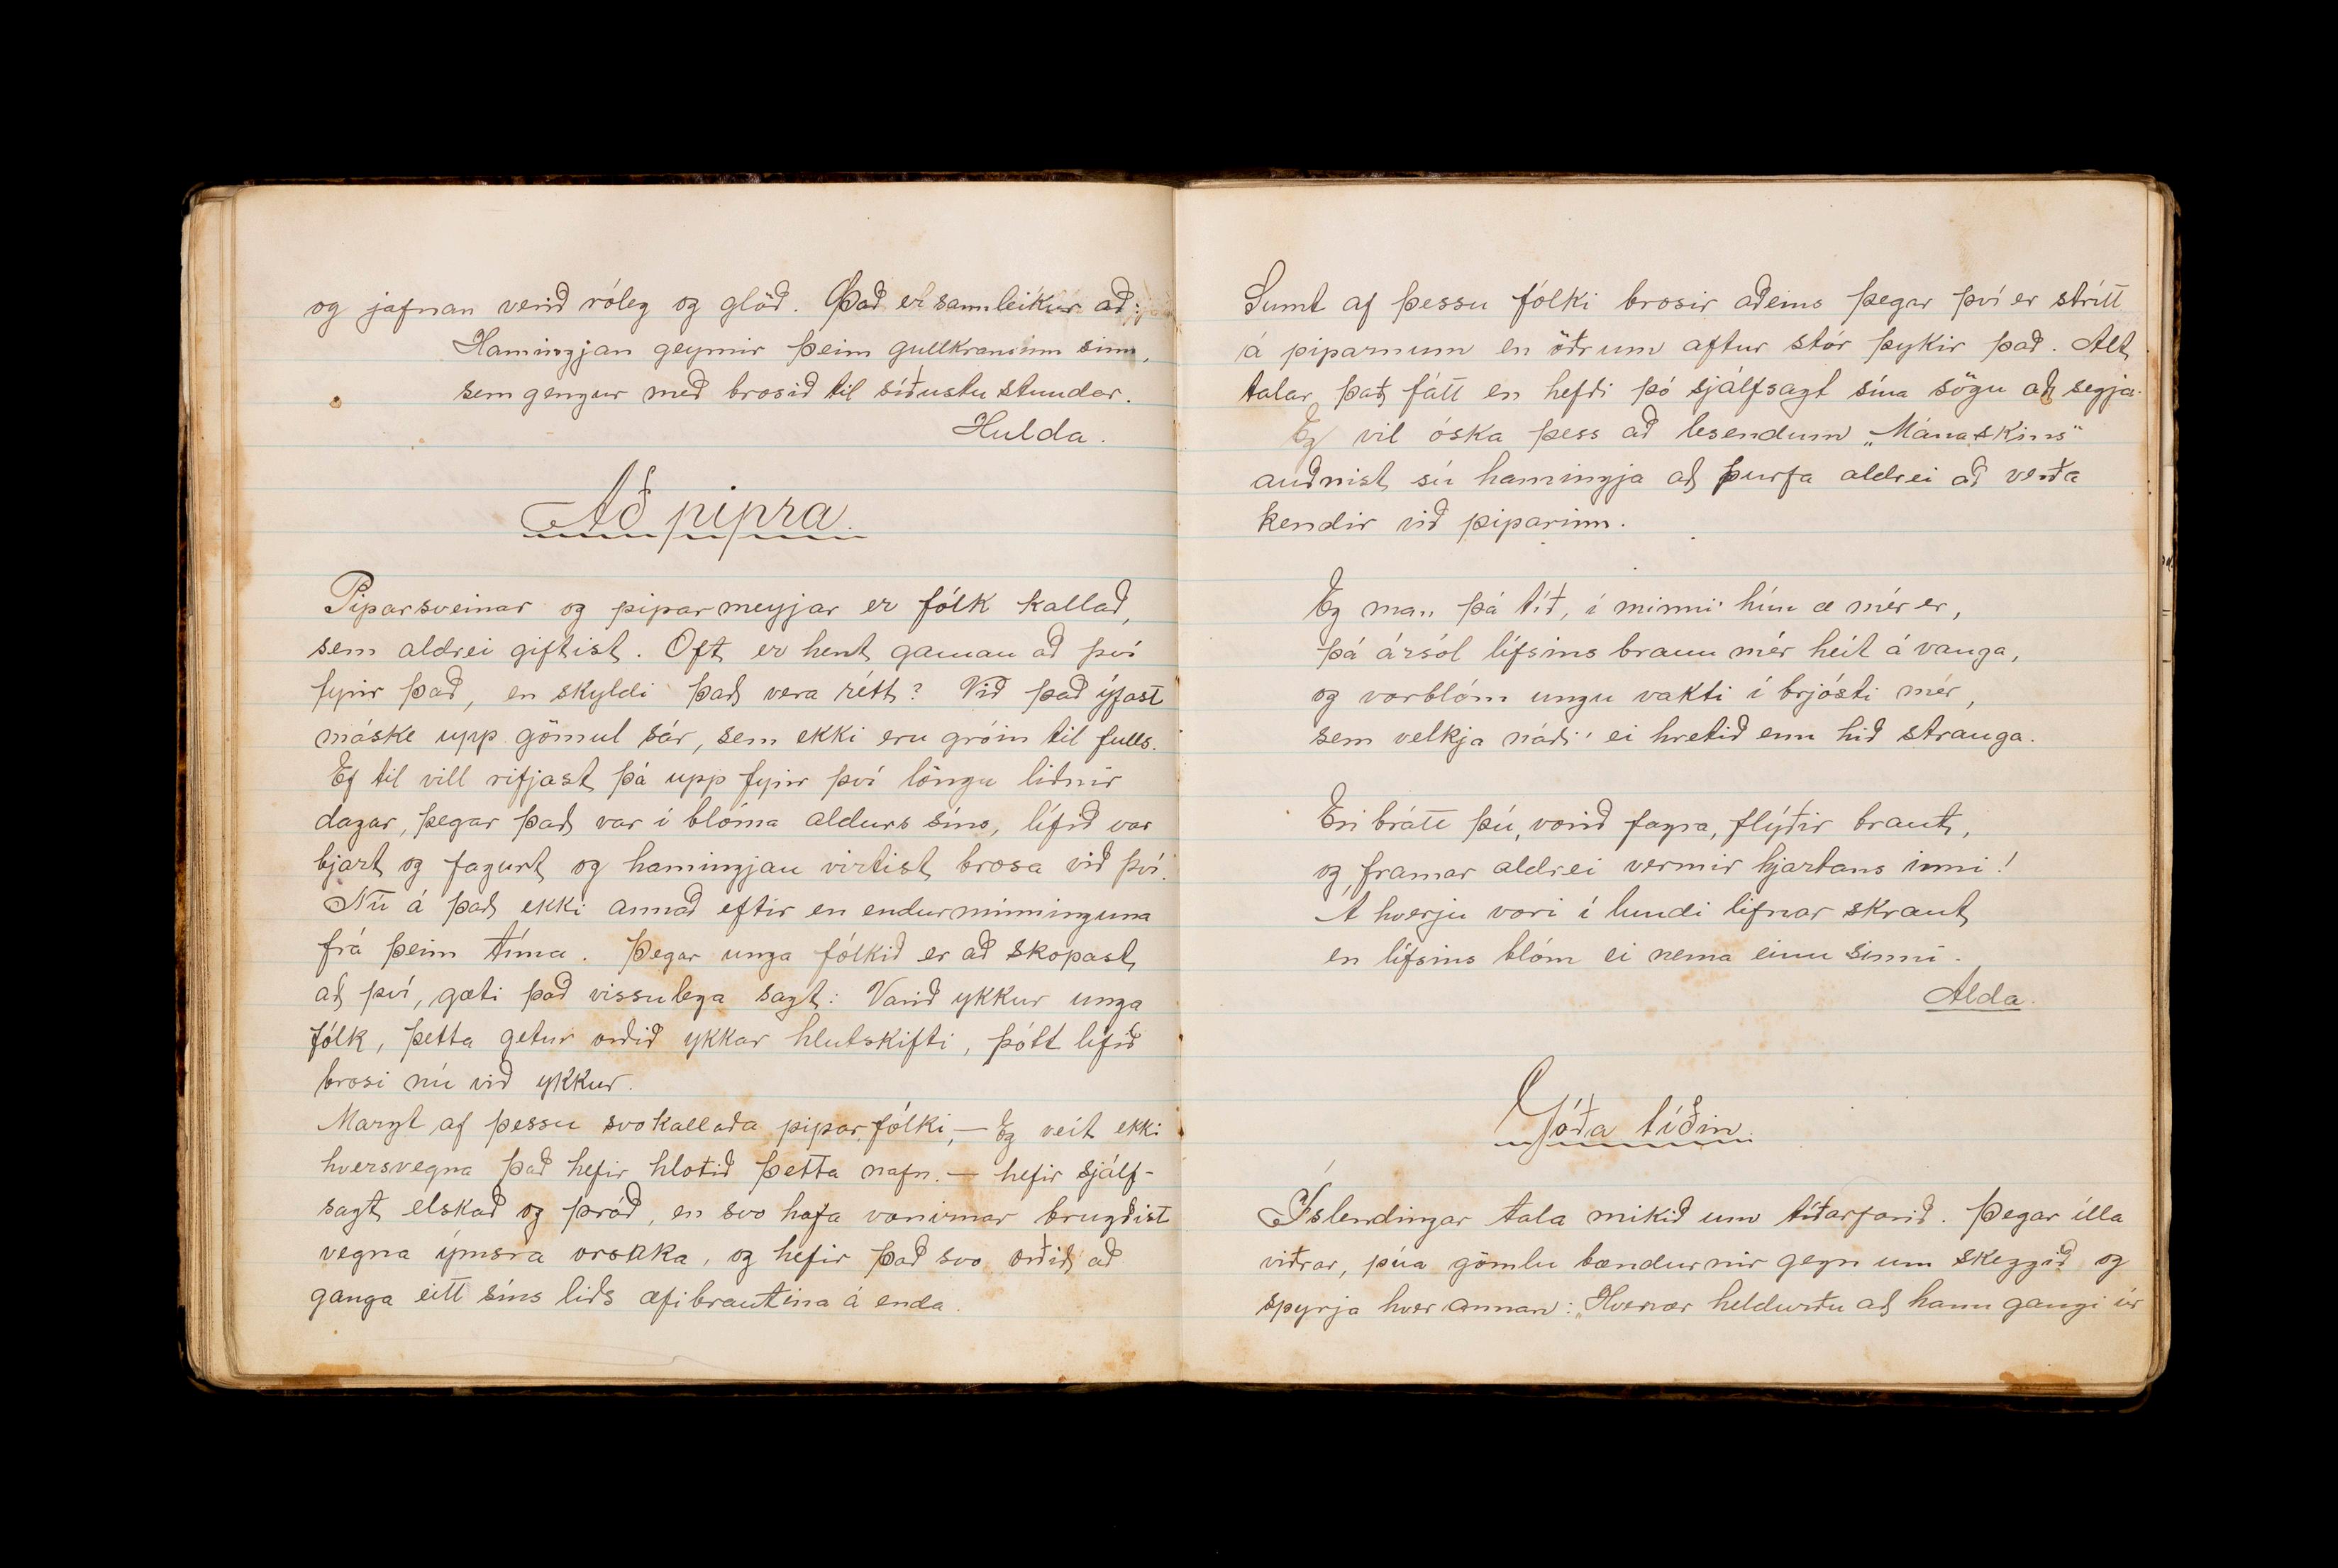 og jafnan verið róleg og glöð. Það er sannleikur að:
Hamingjan geymir þeim gullkransinn sinn,
sem gengur með brosið til síðustu stundar.
Hulda.
Að pipra.
Piparsveinar og piparmeyjar er fólk kallað,
sem aldrei giftist. Oft er hent gaman að því
fyrir það, en skyldi það vera rétt? Við það ýfast
máske upp gömul sár, sem ekki eru gróin til fulls.
Ef til vill rifjast þá upp fyrir því löngu liðnir
dagar, þegar það var í blóma aldurs síns, lífið var
bjart og fagurt og hamingjan virtist brosa við því.
Nú á það ekki annað eftir en endurminninguna
frá þeim tíma. Þegar unga fólkið er að skopast
að því, gæti það vissulega sagt: Varið ykkur unga
fólk, þetta getur orðið ykkar hlutskifti, þótt lífið
brosi nú við ykkur.
Margt af þessu svokallaða piparfólki, — Eg veit ekki
hversvegna það hefir hlotið þetta nafn. — hefir sjálf-
sagt elskað og þráð, en svo hafa vonirnar brugðist
vegna ýmsra orsaka, og hefir það svo orðið að
ganga eitt síns liðs æfibrautina á enda.
Sumt af þessu fólki brosir aðeins þegar því er strítt
á piparnum en öðrum aftur stór þykir það. Alt
talar það fátt en hefði þó sjálfsagt sína sögu að segja.
Eg vil óska þess að lesendum „Mánaskins"
auðnist sú hamingja að þurfa aldrei að verða
kendir við piparinn.
Eg man þá tíð, í minni hún æ mér er,
þá ársól lífsins brann mér heit á vanga,
og vorblóm ungu vakti í brjósti mér,
sem velkja náði ei hretið enn hið stranga.
En brátt þú, vorið fagra, flýðir braut,
og framar aldrei vermir hjartans inni!
Á hverju vori í lundi lifnar skraut
en lífsins blóm ei nema einu sinni.
Alda.
Góða tíðin.
Íslendingar tala mikið um tíðarfarið. Þegar illa
viðrar, púa gömlu bændurnir gegn um skeggið og
spyrja hver annan: „Hvenær heldurðu að hann gangi úr